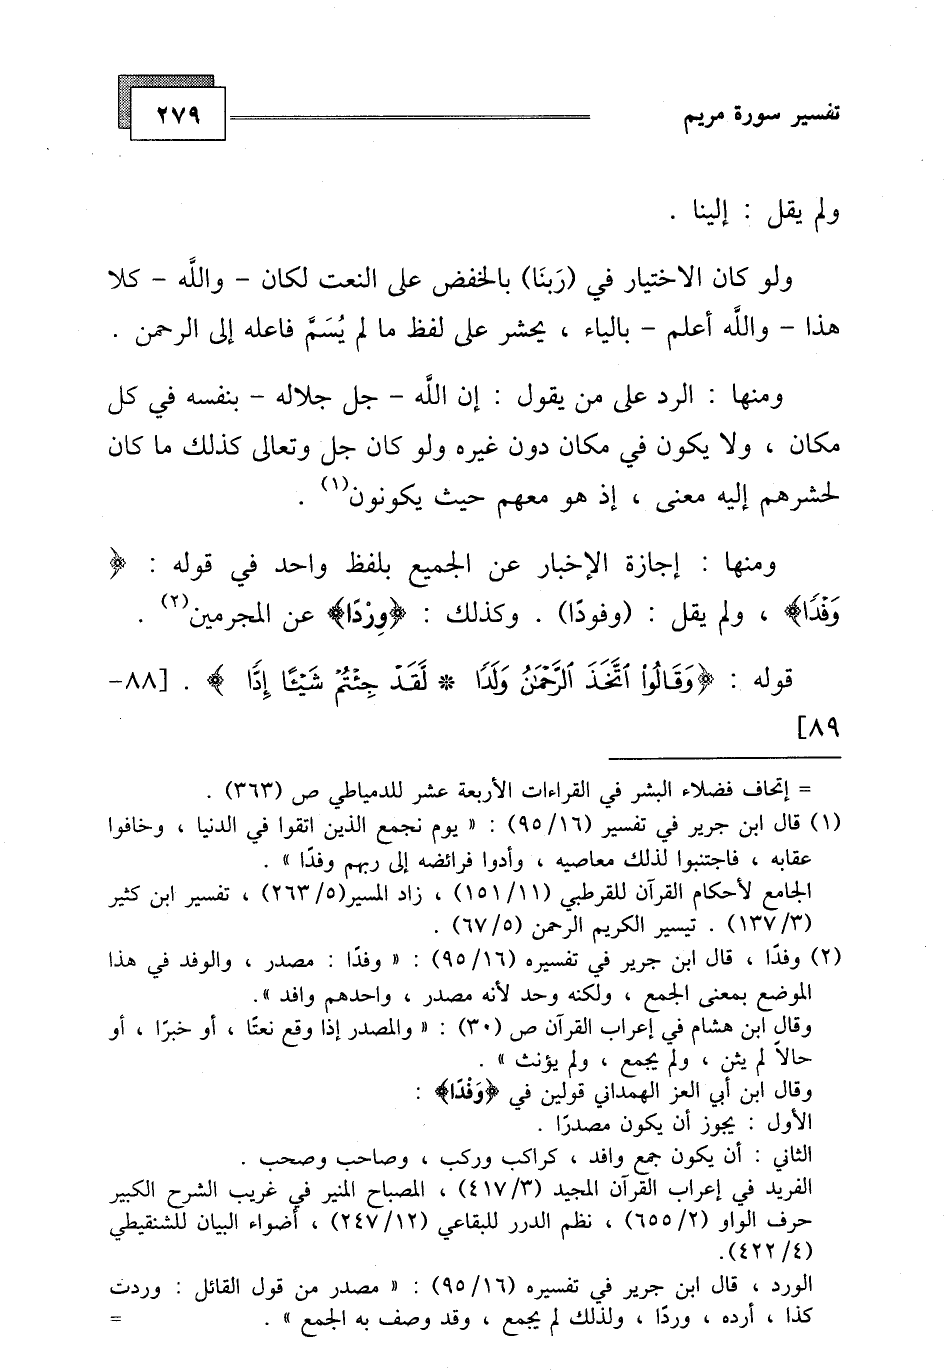 تفسير سورة مريم
٢٧٩
ولم يقل : إلينا .
ولو كان الاختيار في (رَبنَا) بالخفض على النعت لكان – والله – كلا
هذا – واللَّه أعلم – بالياء ، يحشر على لفظ ما لم يُسَمَّ فاعله إلى الرحمن .
ومنها : الرد على من يقول : إن اللَّه – جل جلاله – بنفسه في كل
مكان ، ولا يكون في مكان دون غيره ولو كان جل وتعالى كذلك ما كان
لحشرهم إليه معنى ، إذ هو معهم حيث يكونون(١) .
ومنها : إجازة الإخبار عن الجميع بلفظ واحد في قوله : ﴿
وَفْدًا﴾ ، ولم يقل : (وفودًا) . وكذلك : ﴿وِرْدًا﴾ عن المجرمين(٢) .
قوله : ﴿وَقَالُوا۟ ٱتَّخَذَ ٱلرَّحْمَٰنُ وَلَدًا * لَّقَدْ جِئْتُمْ شَيْـًٔا إِدًّا ﴾ . [٨٨–
٨٩]
= إتحاف فضلاء البشر في القراءات الأربعة عشر للدمياطي ص (٣٦٣) .
(١) قال ابن جرير في تفسير (٩٥/١٦) : « يوم نجمع الذين اتقوا في الدنيا ، وخافوا
عقابه ، فاجتنبوا لذلك معاصيه ، وأدوا فرائضه إلى ربهم وفدًا » .
الجامع لأحكام القرآن للقرطبي (١٥١/١١) ، زاد المسير(٢٦٣/٥) ، تفسير ابن كثير
(١٣٧/٣) . تيسير الكريم الرحمن (٦٧/٥) .
(٢) وفدًا ، قال ابن جرير في تفسيره (٩٥/١٦) : « وفدًا : مصدر ، والوفد في هذا
الموضع بمعنى الجمع ، ولكنه وحد لأنه مصدر ، واحدهم وافد ».
وقال ابن هشام في إعراب القرآن ص (٣٠) : « والمصدر إذا وقع نعتًا ، أو خبرًا ، أو
حالاً لم يثن ، ولم يجمع ، ولم يؤنث » .
وقال ابن أبي العز الهمداني قولين في ﴿وَفْدًا﴾ :
الأول : يجوز أن يكون مصدرًا .
الثاني : أن يكون جمع وافد ، كراكب وركب ، وصاحب وصحب .
الفريد في إعراب القرآن المجيد (٤١٧/٣) ، المصباح المنير في غريب الشرح الكبير
حرف الواو (٦٥٥/٢) ، نظم الدرر للبقاعي (٢٤٧/١٢) ، أضواء البيان للشنقيطي
(٤٢٢/٤).
الورد ، قال ابن جرير في تفسيره (٩٥/١٦) : « مصدر من قول القائل : وردت
كذا ، أرده ، وردًا ، ولذلك لم يجمع ، وقد وصف به الجمع » .
=